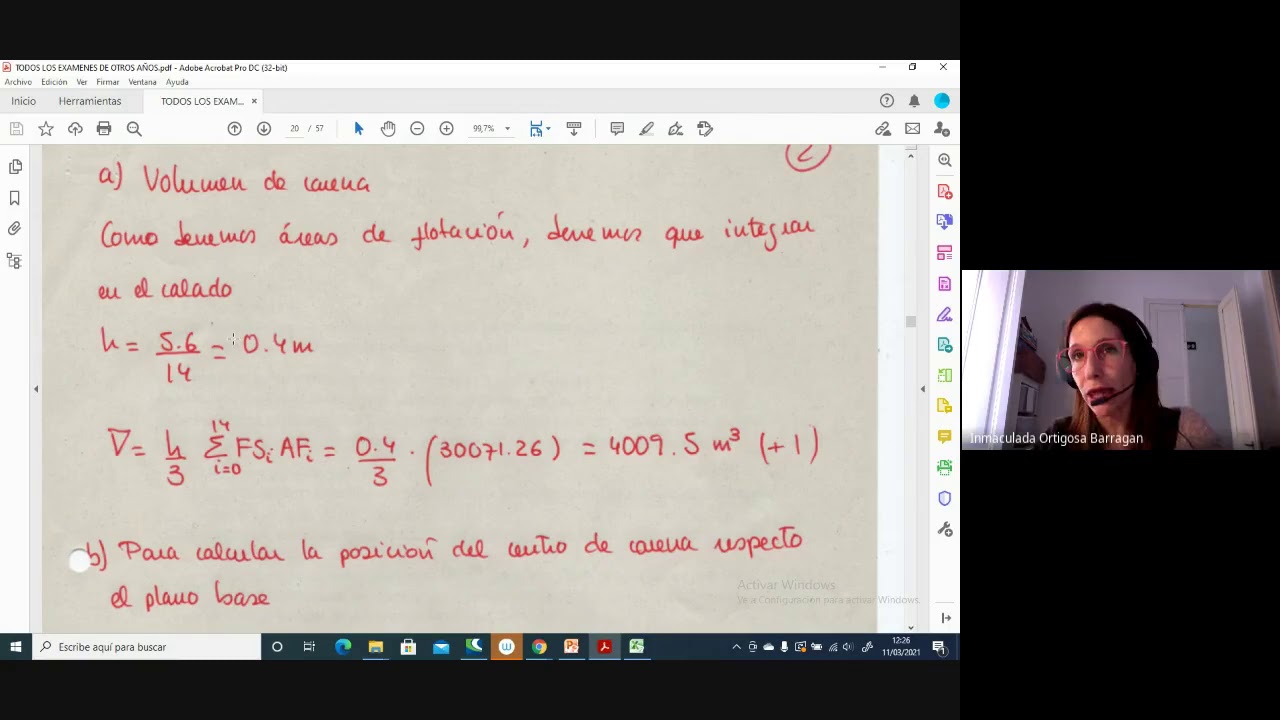 TODOS LOS EXAMENES DE OTROS AÑOS.pdf - Adobe Acrobat Pro DC (32-bit)
Archivo Edición Ver Firmar Ventana Ayuda
Inicio Herramientas TODOS LOS EXAM... ×
20 / 57 99,7%
2
a) Volumen de carena
Como tenemos áreas de flotación, tenemos que integrar
en el calado
h = 5.6/14 = 0.4 m
∇ = h/3 14∑i=0 FSi AFi = 0.4/3 · (30071.26) = 4009.5 m³ (+1)
b) Para calcular la posición del centro de carena respecto
el plano base
Activar Windows
Ve a Configuración para activar Windows.
Inmaculada Ortigosa Barragan
Escribe aquí para buscar
12:26
11/03/2021